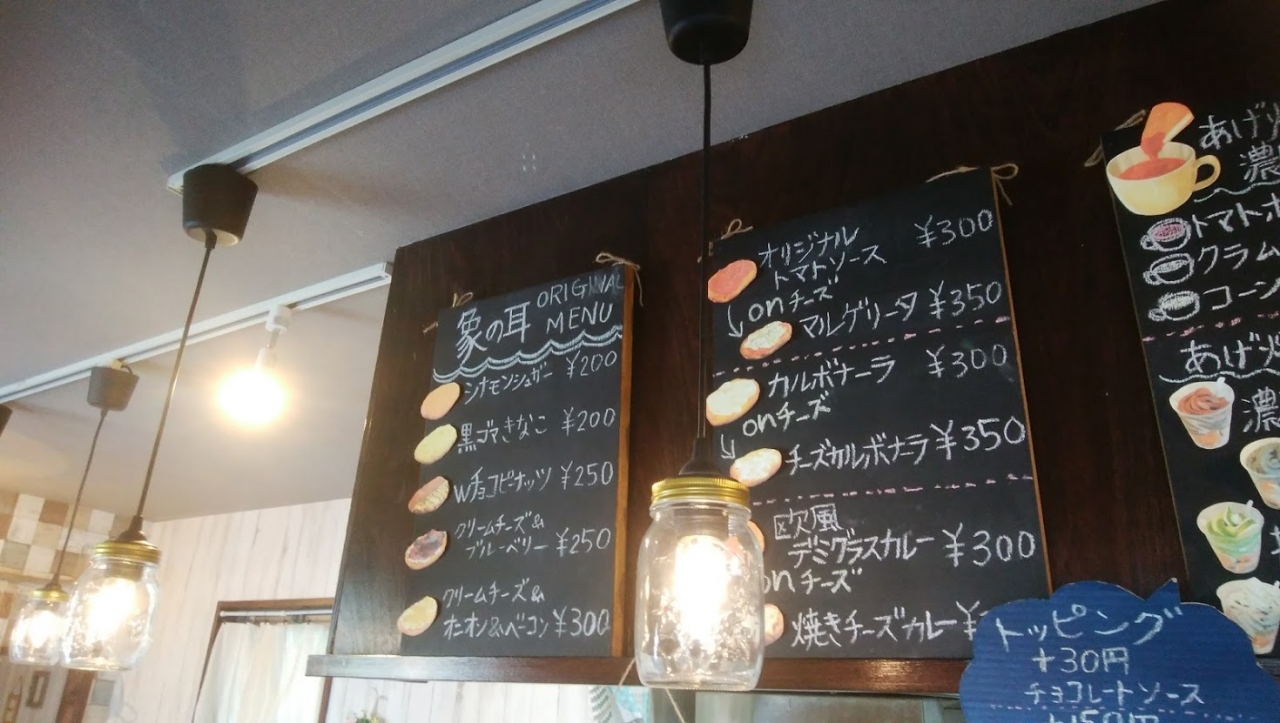 象の耳 ORIGINAL
MENU
シナモンシュガー ¥200
黒ゴマきなこ ¥200
Wチョコピーナッツ ¥250
クリームチーズ&
ブルーベリー ¥250
クリームチーズ&
オニオン&ベーコン ¥300
オリジナル
トマトソース ¥300
onチーズ
マルゲリータ ¥350
カルボナーラ ¥300
onチーズ
チーズカルボナーラ ¥350
欧風
デミグラスカレー ¥300
onチーズ
焼きチーズカレー ¥
あげパ
濃
トマトポ
クラム
コーン
あげパ
濃
トッピング
+30円
チョコレートソース
+50円